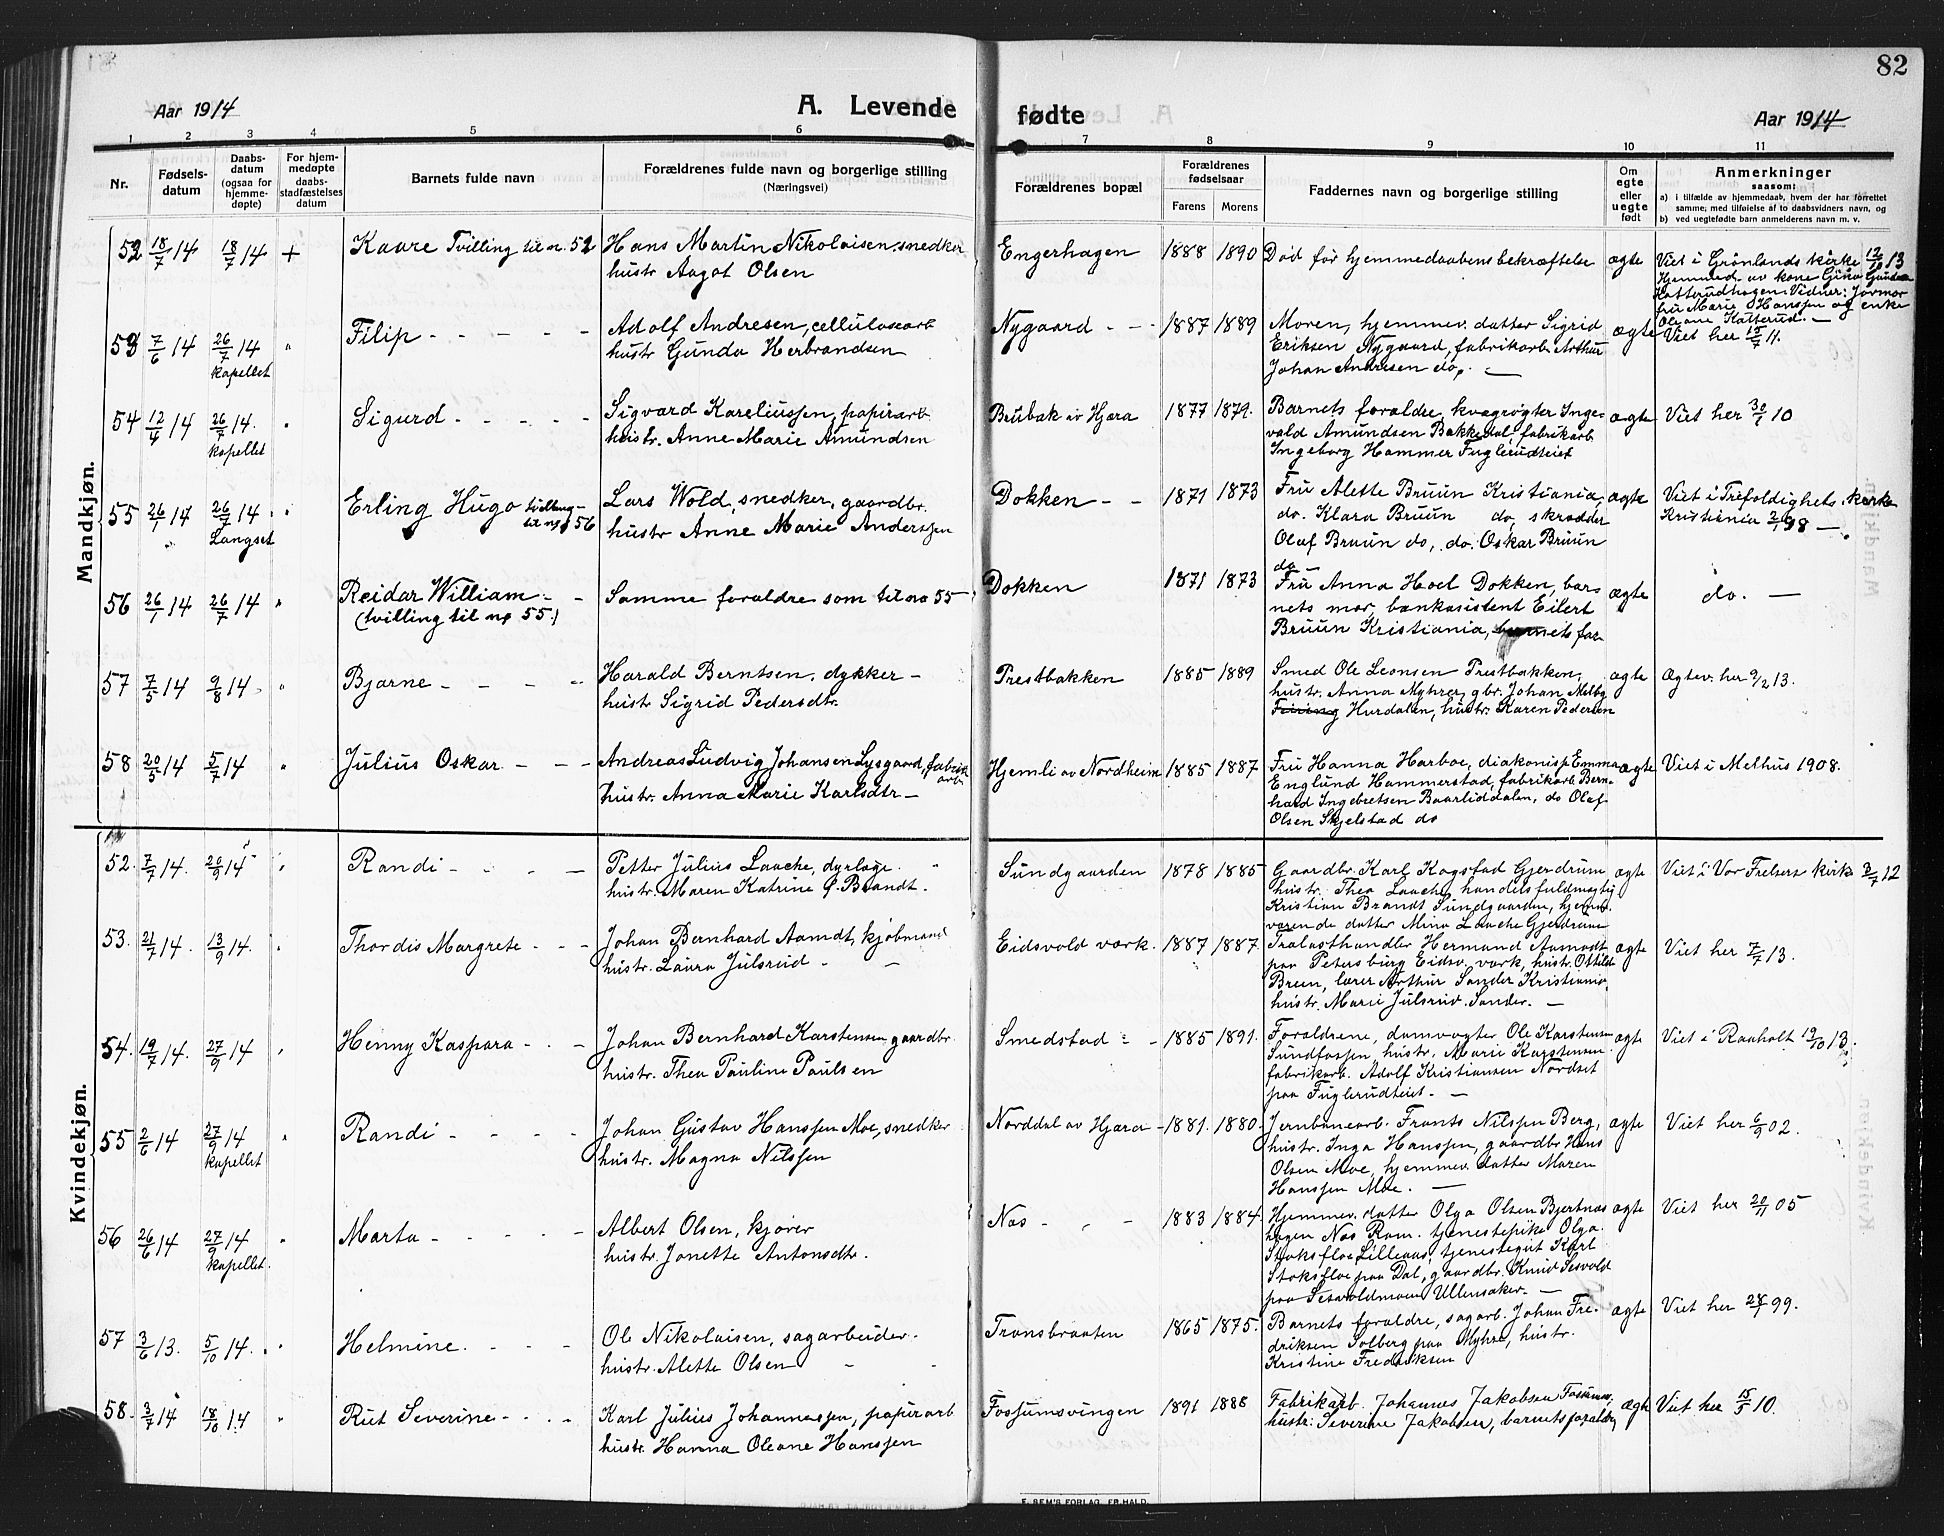 82
Aar 1914
A. Levende fødte
Aar 1914
1 2 3 4 5 6 7 8 9 10 11
Nr.
Fødsels-
datum
Daabs-
datum
(ogsaa for
hjemme-
døpte)
For hjem-
medøpte
daabs-
stadfæstelses
datum
Barnets fulde navn
Forældrenes fulde navn og borgerlige stilling
(Næringsvei)
Forældrenes bopæl
Forældrenes
fødselsaar
Farens Morens
Faddernes navn og borgerlige stilling
Om
egte
eller
uegte
født
Anmerkninger
saasom:
a) i tilfælde av hjemmedaab, hvem der har forrettet
samme; med tilføielse af to daabsvidners navn, og
b) ved uegtefødte barn anmelderens navn m. v.
Mandkjøn.
52 18/7 14 18/7 14 + Kaare Tvilling til nr. 51
Hans Martin Nikolaisen snedker
hustr Aagot Olsen
Engerhagen 1888 1890
Død før hjemmedaabens bekræftelse
ægte
Viet i Grønlands kirke 12/10 13
Hjemmed. av kone Gina
Katterudhagen. Vidner: Jormor
fru Marie Hanssen og enke
Oleane Katterud. —
53 7/6 14 26/7 14
kapellet
Filip - - - - -
Adolf Andresen, cellulosearb
hustr Gunda Herbrandsen
Nygaard - - 1887 1889
Moren, hjemmev. datter Sigrid
Eriksen Nygaard, fabrikarb. Arthur
Johan Andresen do. —
ægte
Viet her 15/7 11.
54 12/4 14 26/7 14.
kapellet
Sigurd - - - - -
Sigvard Kareliussen, papirarb
hustr. Anne Marie Amundsen
Brubak av Hjæra 1877 1879.
Barnets forældre, kvægrøgter Inge-
vald Amundsen Bakkedal, fabrikarb
Ingeborg Hammer Fuglerudteiet
ægte
Viet her 30/1 10
55 26/1 14 26/7 14
Langset
Erling Hugo tvilling
til nr 56
Lars Wold, snedker, gaardbr.
hustr Anne Marie Anderssen
Dokken - - 1871 1873
Fru Alette Bruun Kristiania,
do. Klara Bruun do, skrædder
Olaf Bruun do, do. Oskar Bruun
do —
ægte
Viet i Trefoldighets kirke
Kristiania 98 —
56 26/1 14 26/7 14
Reidar William -
(tvilling til nr 55.)
Samme forældre som til nr 55
Dokken 1871 1873
Fru Anna Hoel Dokken, bar-
nets mor, bankasistent Eilert
Bruun Kristiania, barnets far
ægte
do. —
57 7/5 14 9/8 14
Bjarne - - - -
Harald Berntsen, dykker -
hustr Sigrid Pedersdtr.
Prestbakken 1885 1889
Smed Ole Leonsen Prestbakken,
hustr. Anna Myhrer, gbr. Johan Melby
Feiring Hurdalen, hustr. Karen Pedersen
ægte
Ægtev. her 9/2 13.
58 20/5 14 5/7 14
Julius Oskar - - -
Andreas Ludvig Johansen Lysgaard, fabrik
arb
hustr. Anna Marie Karlsdtr -
Hjemli av Nordheim 1885 1887
Fru Hanna Harboe, diakonisse Emma
Englund Hammerstad, fabrikarb Bern-
hard Ingebretsen Baarliddalen, do Olaf
Olsen Skjelstad do
ægte
Viet i Melhus 1908.
Kvindekjøn.
52. 7/7 14. 20/9 14
Randi - - - -
Petter Julius Laache, dyrlæge.
hustr. Maren Katrine f. Brandt.
Sundgaarden 1878 1885
Gaardbr. Karl Kogstad Gjerdrum
hustr. Thea Laache, handelsfuldmægtig
Kristian Brandt Sundgaarden, hjemme-
værende datter Mina Laache Gjerdrum
ægte
Viet i Vor Frelsers kirke 2/7 12
53. 21/7 14. 13/9 14.
Thordis Margrete - - -
Johan Bernhard Aamdt, kjøbmand
hustr. Laura Julsrud -
Eidsvold værk. 1887 1887
Tralasthandler Hermand Aamodt
paa Petersburg Eidsv. værk, hustr. Ottilde
Breen, lærer Arthur Sander Kristiania,
hustr. Marie Julsrud Sander. —
ægte
Viet her 7/7 13.
54. 19/7 14. 27/9 14
Henny Kaspara - - -
Johan Bernhard Karstensen, gaardbr.
hustr. Thea Pauline Paulsen
Smedstad - - 1885 1891.
Forældrene, damvogter Ole Karstensen
Sundfossen, hustr. Marie Karstensen
fabrikarb. Adolf Kristiansen Nordset
paa Fuglerudteiet. —
ægte
Viet i Raaholt 19/10 13.
55 2/6 14 27/9 14
kapellet
Randi - - - -
Johan Gustav Hanssen Moe, snedker
hustr. Magna Nilssen
Norddal av Hjæra - 1881. 1880.
Jernbanearb. Frants Nilssen Berg,
hustr. Inga Hanssen, gaardbr Hans
Olsen Moe, hjemmev. datter Maren
Hanssen Moe. —
ægte
Viet her 6/9 02.
56 26/6 14 27/9 14
kapellet.
Marta - - - - -
Albert Olsen, kjører
hustr. Jonette Antonsdtr.
Næs - - - 1883 1884.
Hjemmev. datter Olga Olsen Bjertnæs
hagen Næs Rom. tjenestepike Olga
Stoksfloe Lillenæs, tjenestegut Karl
Stoksfloe paa Dal, gaardbr. Knud Sesvold
paa Sesvoldmoen Ullensaker. —
ægte
Viet her 20/11 05
57 3/6 13. 5/10 14.
Helmine. - - - -
Ole Nikolaisen, sagarbeider.
hustr. Alette Olsen
Transbraaten 1865 1875.
Barnets forældre, sagarb. Johan Fre-
driksen Solberg paa Myhre, hustr.
Kristine Fredriksen
ægte
Viet her 28/1 99.
58. 3/7 14 18/10 14
Rut Severine - - -
Karl Julius Johannessen, papirarb
hustr. Hanna Oleane Hanssen
Fossumsvingen 1891 1888
Fabrikarb. Johannes Jakobsen
hustr: Severine Jakobsen, barnets forældre
ægte
Viet her 15/5 10.
E. SEM'S FORLAG, FR.HALD.